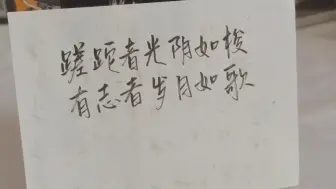 蹉跎者光阴如梭
有志者岁月如歌